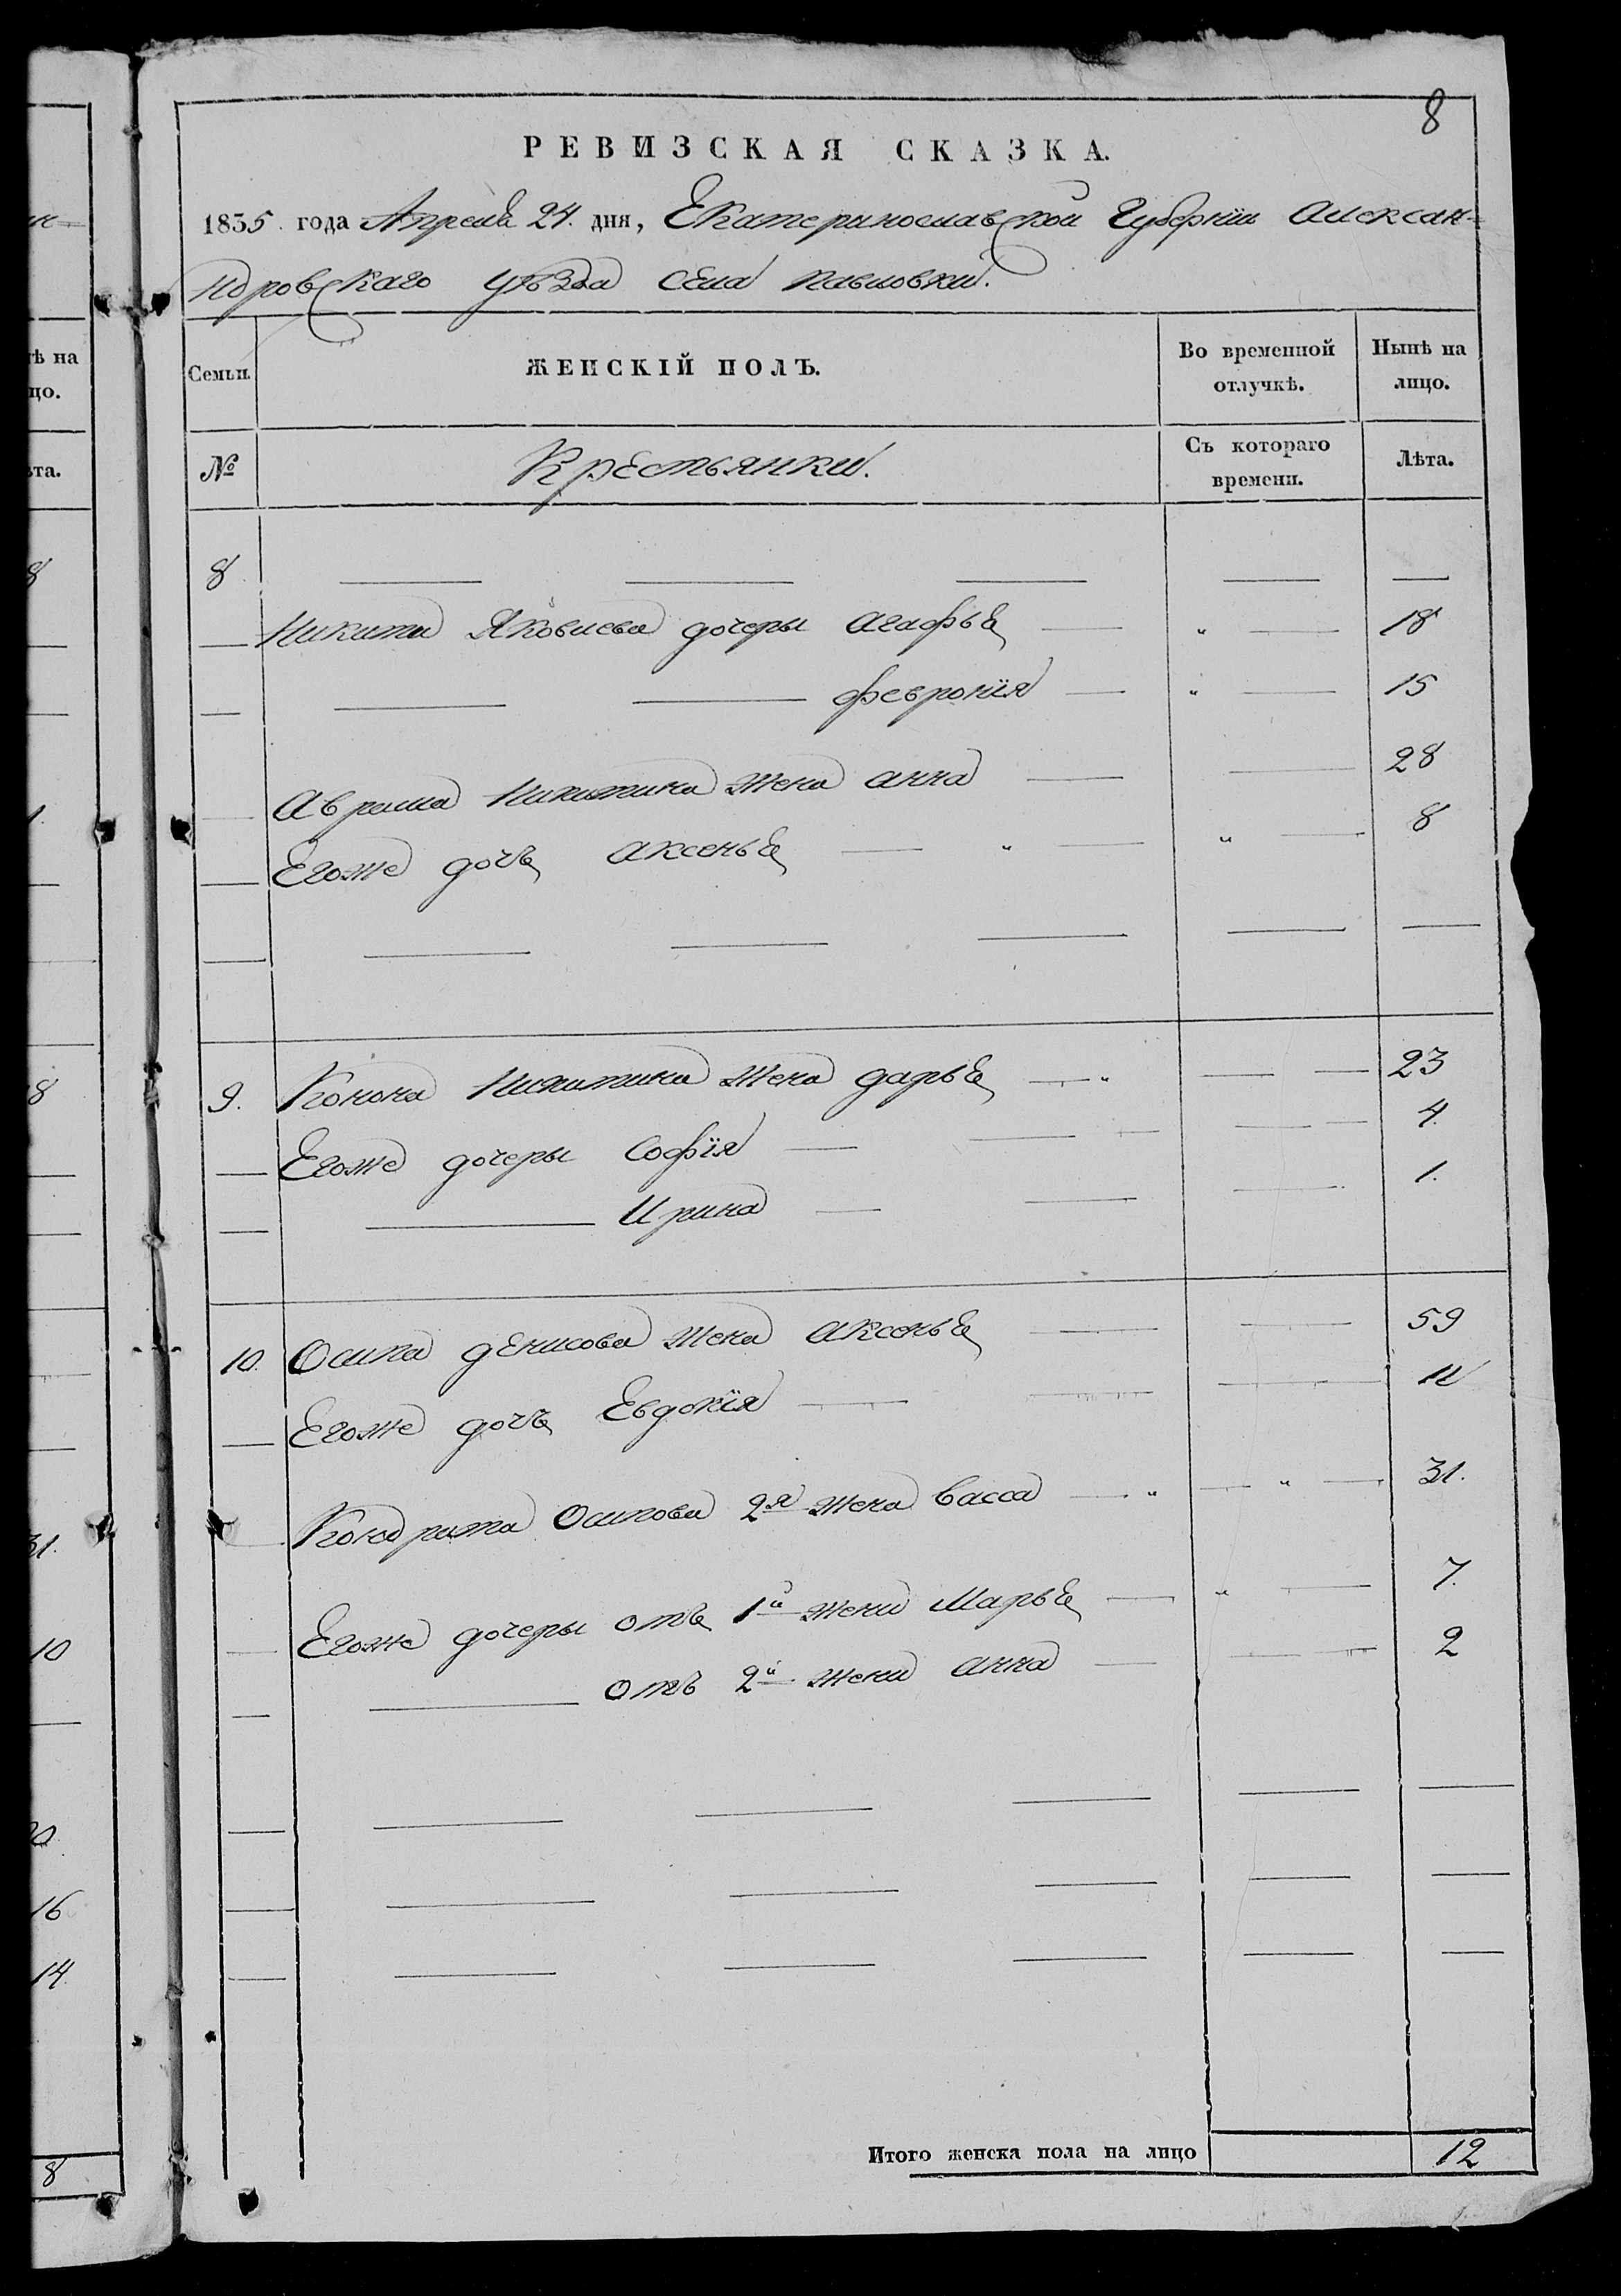 8
РЕВИЗСКАЯ СКАЗКА.
1835. года Апреля 24. дня, Екатеринославской Губернїи Алексан=
ндровскаго уѣзда села Павловки.
Семьи. ЖЕНСКІЙ ПОЛЪ. Во временной отлучкѣ. Нынѣ на лицо.
№ Крестьянки. Съ котораго времени. Лѣта.
8
Никита Яковлева дочеры агафья 18
феврония 15
Аврама Никитина жена анна 28
Егоже дочь аксенья 8
9. Конона Никитина жена дарья 23
Егоже дочеры Софїя 4.
Ирина 1.
10. Осипа денисова жена аксенья 59
Егоже дочь Евдокїя
Кондрата Осипова 2я жена Васса 31.
Егоже дочеры отъ 1й жени Марья 7.
отъ 2й жени анна 2
Итого женска пола на лицо 12
ѣ на
цо.
ѣта.
8
1.
8
31.
10
16
14.
8